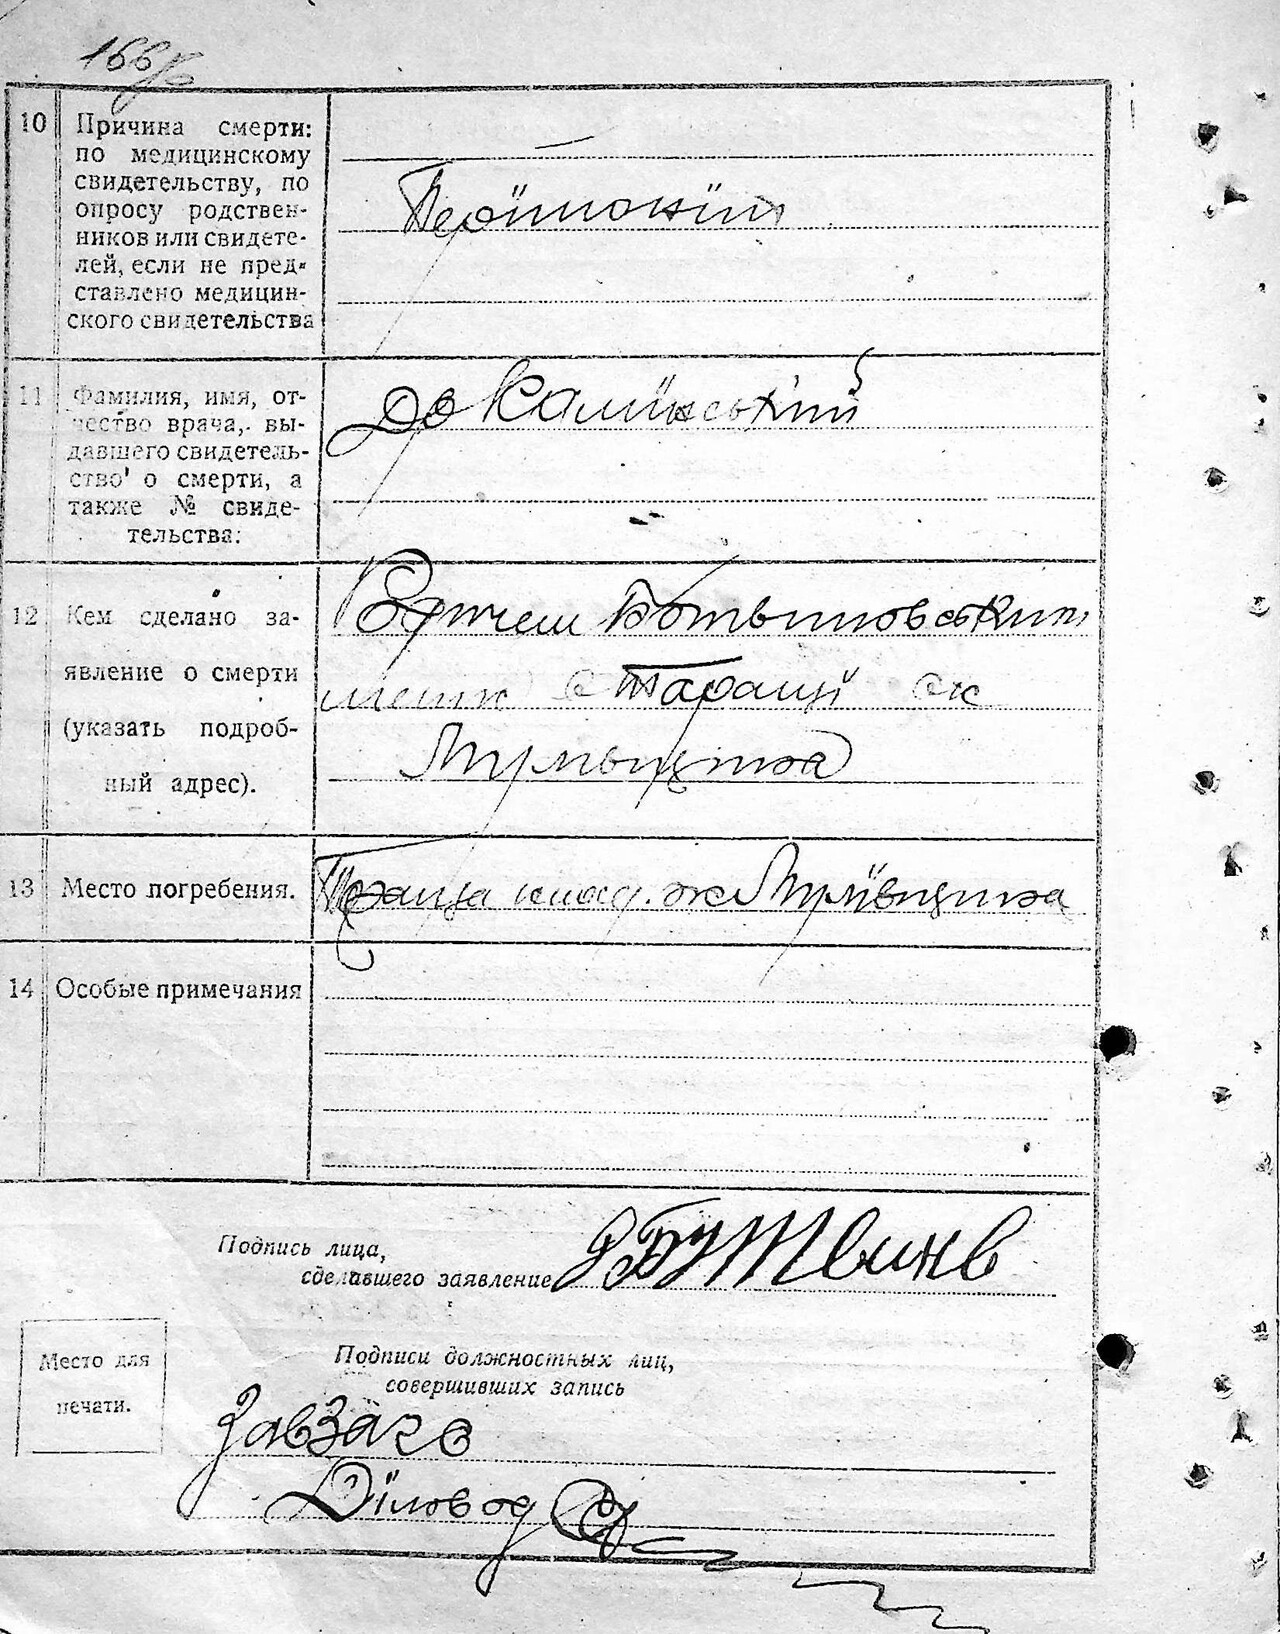 10 Причина смерти:
по медицинскому
свидетельству, по
опросу родствен-
ников или свидете-
лей, если не пред-
ставлено медицин-
ского свидетельства
Перітоніт
11 Фамилия, имя, от-
чество врача, вы-
давшего свидетель-
ство о смерти, а
также № свиде-
тельства:
Калінський
12 Кем сделано за-
явление о смерти
(указать подроб-
ный адрес).
Ботвиновським
мешк Таращі
13 Место погребения.
Тараща клад.
14 Особые примечания
Подпись лица,
сделавшего заявление
Место для
печати.
Подписи должностных лиц,
совершивших запись
ЗавЗагс
Діловод